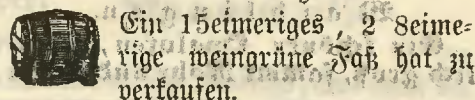 Ein 15eimeriges, 2 8eime=
rige weingrüne Faß hat zu
verkaufen.